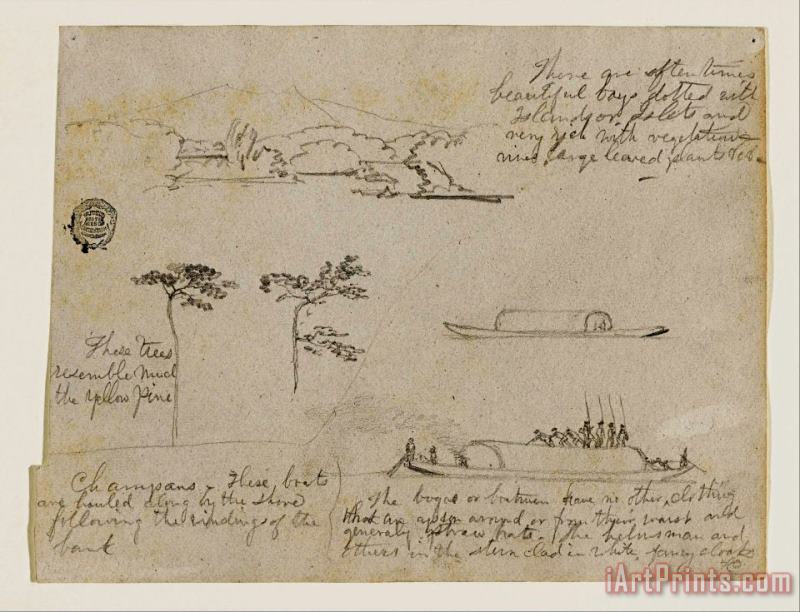 There are oftentimes
beautiful bays dotted with
Islands or Islets and
very rich with vegetation
vines large leaved plants &c.
These trees
resemble much
the yellow Pine
Champans - These boats
are hauled along by the shore
following the windings of the
bank
The bogas or boatmen have no other clothing
than an apron around or from their waist and
generaly straw hats. The helmsman and
others in the stern clad in white, fancy cloaks
iArtPrints.com